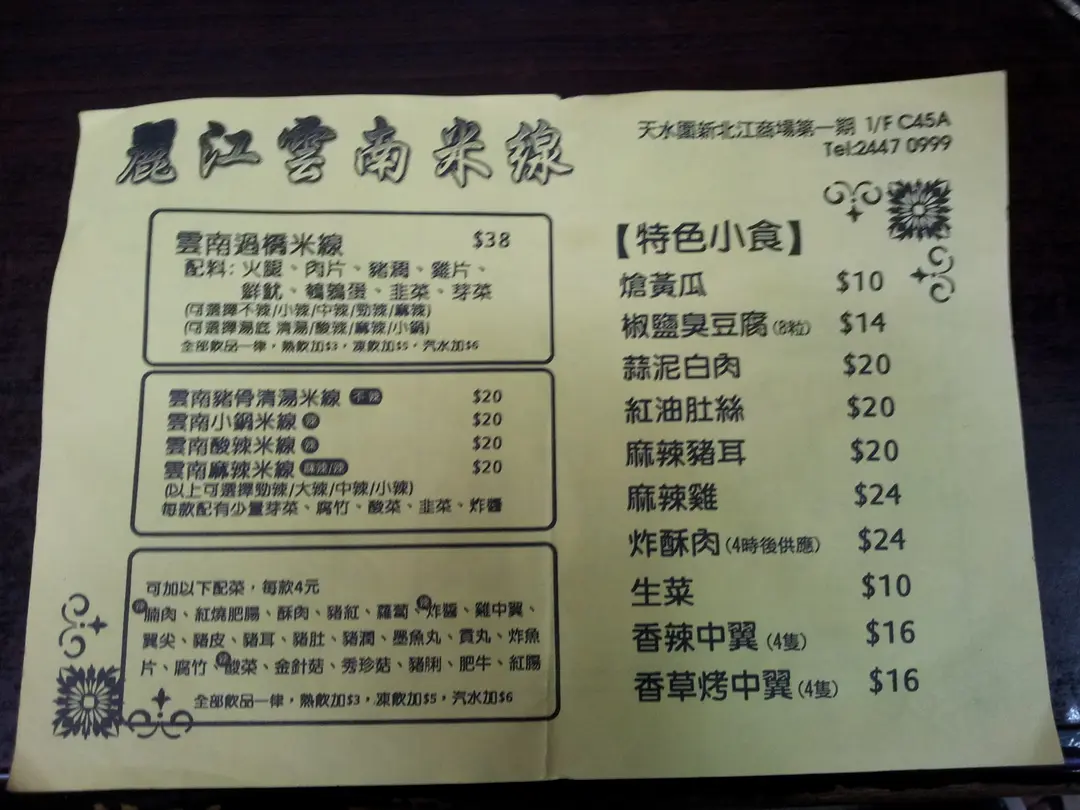 麗江雲南米線
天水圍新北江商場第一期 1/F C45A
Tel:2447 0999
雲南過橋米線 $38
配料: 火腿、肉片、豬潤、雞片、
鮮魷、鵪鶉蛋、韭菜、芽菜
(可選擇不辣/小辣/中辣/勁辣/麻辣)
(可選擇湯底 清湯/酸辣/麻辣/小鍋)
全部飲品一律，熱飲加$3，凍飲加$5，汽水加$6
雲南豬骨清湯米線 不辣 $20
雲南小鍋米線 辣 $20
雲南酸辣米線 辣 $20
雲南麻辣米線 麻辣/辣 $20
(以上可選擇勁辣/大辣/中辣/小辣)
每款配有少量芽菜、腐竹、酸菜、韭菜、炸醬
可加以下配菜，每款4元
辣腩肉、紅燒肥腸、酥肉、豬紅、蘿蔔、辣炸醬、雞中翼、
翼尖、豬皮、豬耳、豬肚、豬潤、墨魚丸、貢丸、炸魚
片、腐竹、辣酸菜、金針菇、秀珍菇、豬脷、肥牛、紅腸
全部飲品一律，熱飲加$3，凍飲加$5，汽水加$6
【特色小食】
熗黃瓜 $10
椒鹽臭豆腐(8粒) $14
蒜泥白肉 $20
紅油肚絲 $20
麻辣豬耳 $20
麻辣雞 $24
炸酥肉(4時後供應) $24
生菜 $10
香辣中翼(4隻) $16
香草烤中翼(4隻) $16